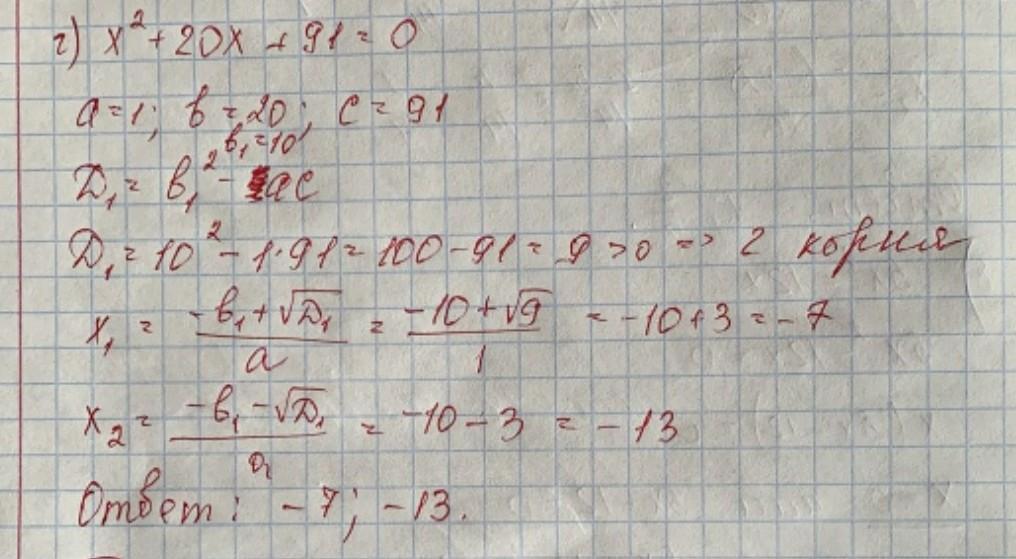 г) x² + 20x + 91 = 0
a = 1; b = 20; c = 91
b₁ = 10
D₁ = b₁² - ac
D₁ = 10² - 1·91 = 100 - 91 = 9 > 0 => 2 корня
x₁ = (-b₁ + √D₁)/a = (-10 + √9)/1 = -10 + 3 = -7
x₂ = (-b₁ - √D₁)/a = -10 - 3 = -13
Ответ: -7; -13.